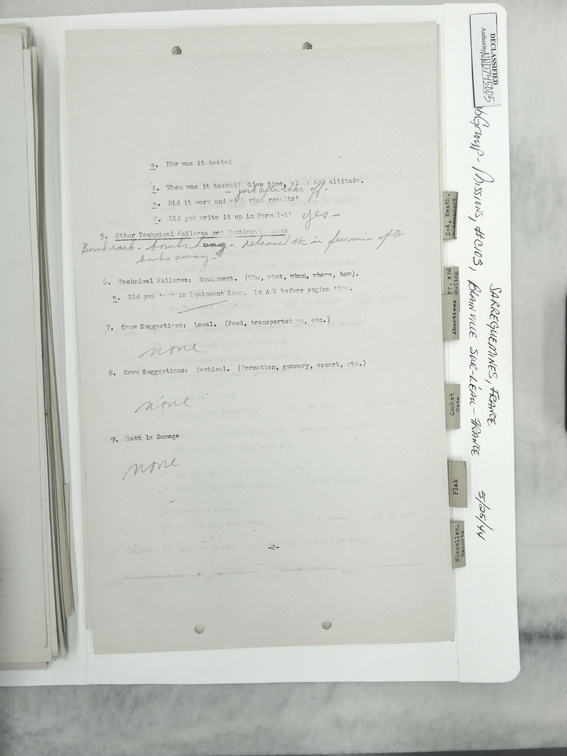 c. How was it tested
d. When was it tested? Give time, place and altitude.
- just after take off -
e. Did it work and with what results?
f. Did you write it up in Form 1-A? yes -
5. Other Technical Failures not Mentioned
Bomb rack - bombs hung - released ok in few min after
bombs away -
6. Technical Failures: Equipment. (Who, what, when, where, how).
a. Did you in Equipment Room. In A/C before engine time.
7. Crew Suggestions: Local. (Food, transportation, etc.)
none
8. Crew Suggestions: Tactical. (Formation, gunnery, escort, etc.)
none
9. Battle Damage
none
-2-
DECLASSIFIED
Authority NND745005
Group - Missions, #C103, Blainville Sur-Leau - France
Sarreguemines, France
5/25/44
Abortives
Combat
Flak
Miscellan.